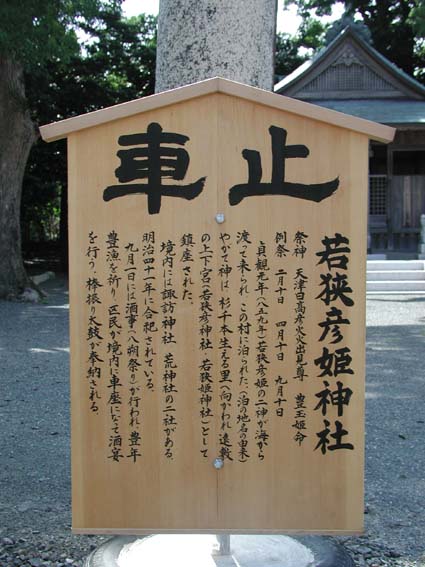 車止
若狭彦姫神社
祭神　天津日高彦火火出見尊　豊玉姫命
例祭　二月十日　四月十日　九月十日
貞観元年（八五九年）若狭彦姫の二神が海から
渡って来られ、この村に泊られた。（泊の地名の由来）
やがて神は、杉千本生える里へ向かわれ遠敷
の上下宮（若狭彦神社・若狭姫神社）として
鎮座された。
境内には諏訪神社　荒神社の二社がある。
明治四十一年に合祀されている。
九月一日には酒事（八朔祭り）が行われ、豊年
豊漁を祈り、区民が境内に車座になって酒宴
を行う。棒振り太鼓が奉納される。